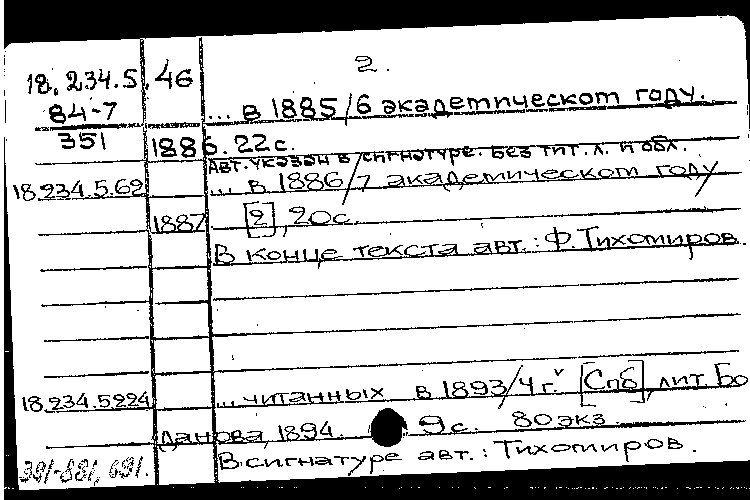 2.
18.234.5.46
84-7
351
... в 1885/6 академическом году.
1886. 22 с.
Авт. указан в сигнатуре. Без тит. л. и обл.
18.234.5.62 ... в 1886/7 академическом году
1887 [2], 20 с.
В конце текста авт.: Ф. Тихомиров.
18.234.5.224 ... читанных в 1893/4 г. [Спб], лит. Бо
данова, 1894. 9 с. 80 экз.
В сигнатуре авт.: Тихомиров.